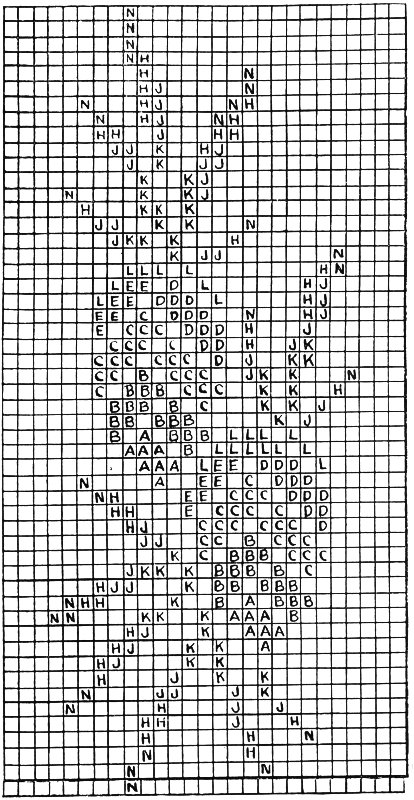 N
N
N
N H
H N
H J N
N H J N H
N H J N H
H H J H H
J J K H J
J K J J
K K J
N K K J
H K K K
J J K K N
J K K K H
K J J N
L L L L H N
L E E D L H J
L E E D D D L H J
E E C D D D N H J
E C C C D D D H J
C C C C D D H J K
C C C C C C D J K K
C C B C C C J K K N
C B B B C C C K K H
B B B B C K K J
B B B B B K J
B A B B B L L L L
A A A B L L L L L L
A A A L E E D D D L
N A E E C D D D
N H E E C C C D D D
H H E C C C C D D
H J C C C C C C D
J J C C B C C C
K C B B B C C C
J K K K B B B B C
H J J K B B B B B
N H H K B A B B B
N N K K K A A A B
H J K A A A
H J K K A
H J K K
H J K K
N J J J K
N H J J
H H J H
H H N
N H
N N
N